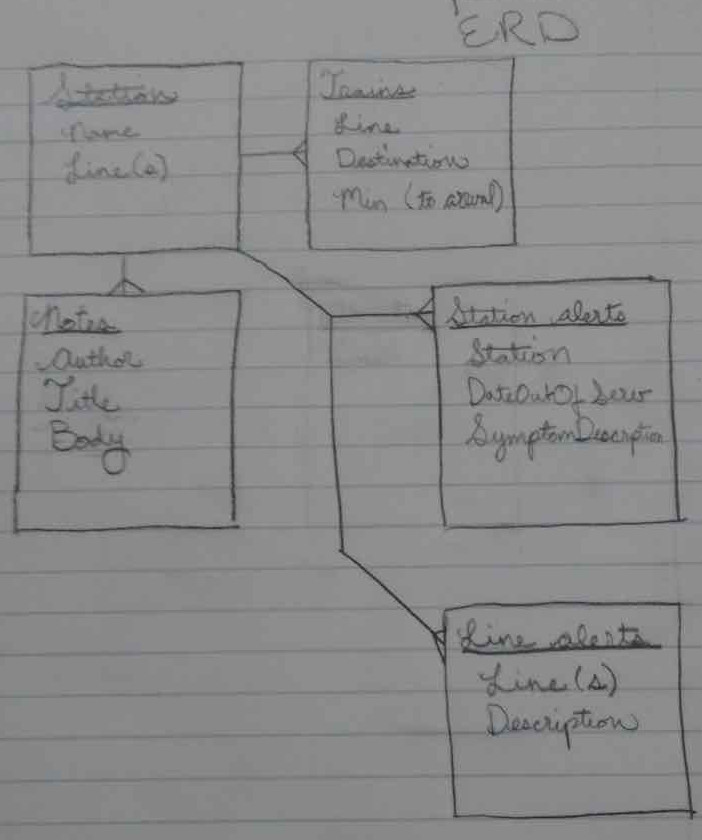 ERD
Station
Name
Line(s)
Trains
Line
Destination
Min (to arival)
Notes
Author
Title
Body
Station alerts
Station
DateOutOfServ
SymptomDescription
Line alerts
Line(s)
Description